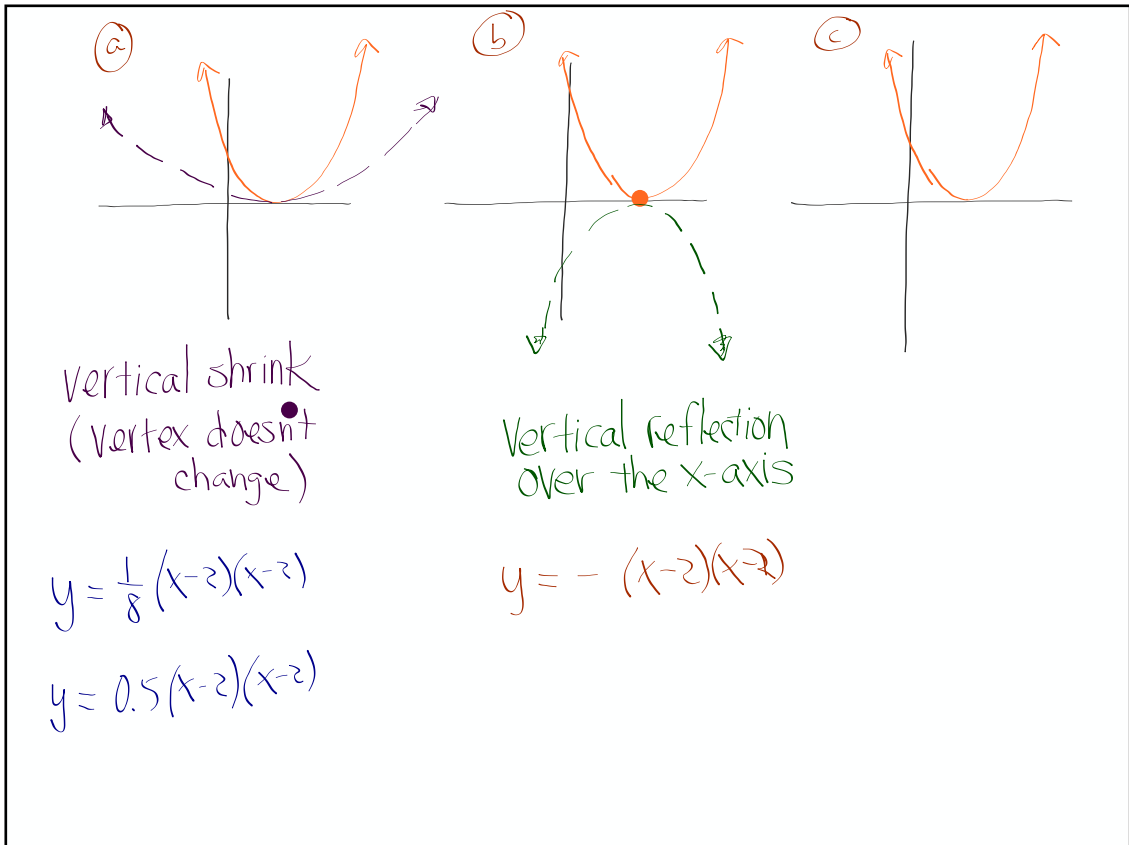 a
b
c
vertical shrink
(vertex doesn't
change)
y = 1/8 (x-2)(x-2)
y = 0.5(x-2)(x-2)
Vertical reflection
over the x-axis
y = - (x-2)(x-2)